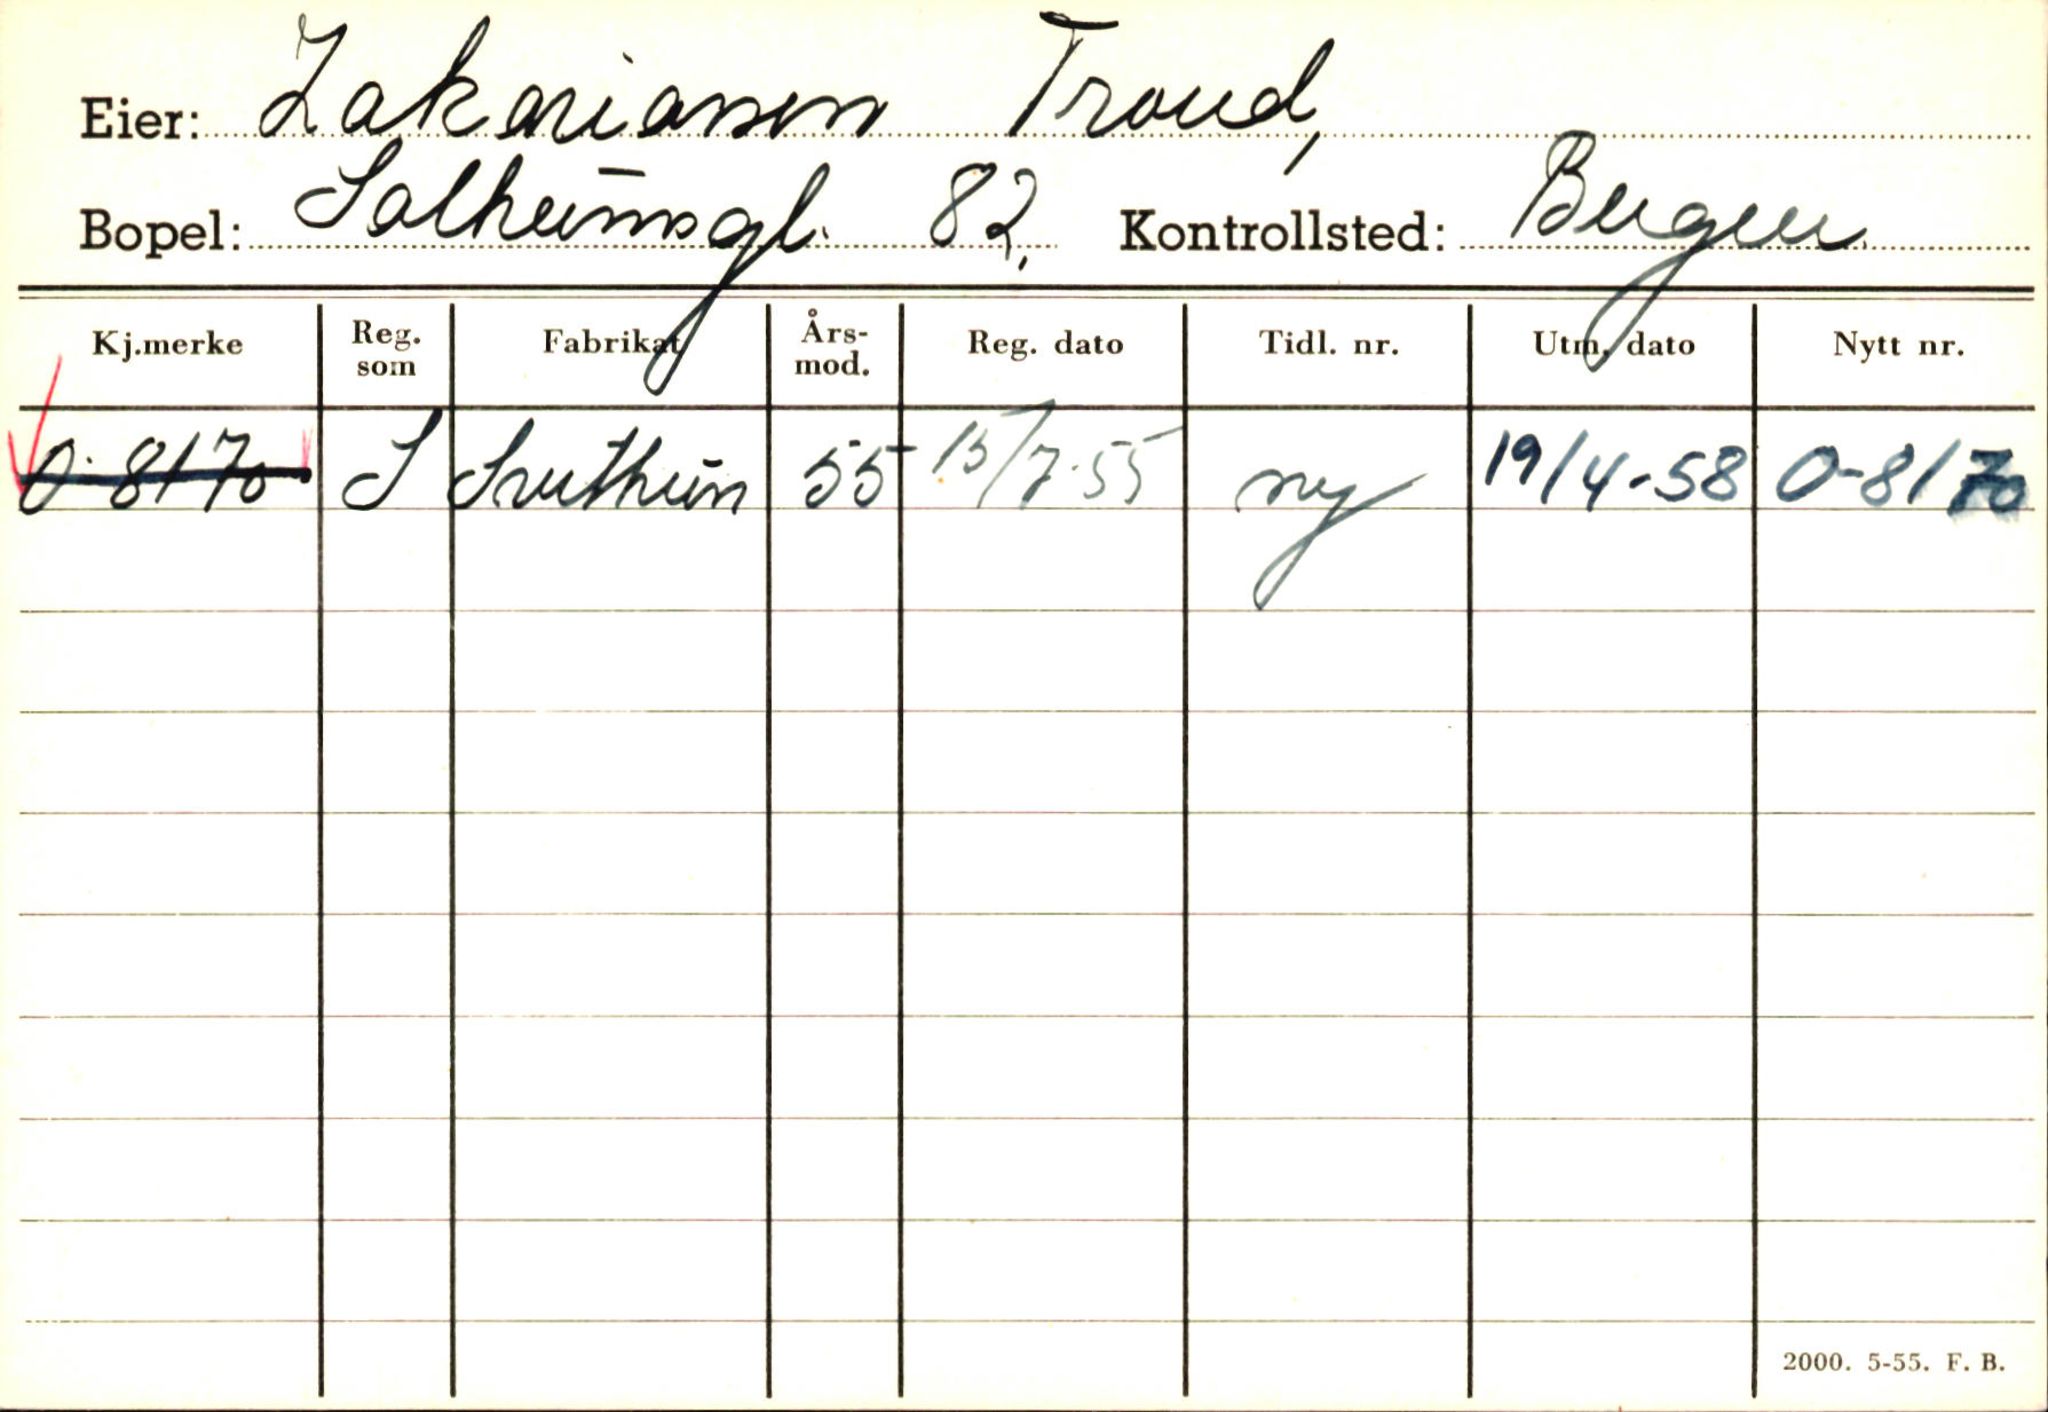 Eier: Zakariassen Trond,
Bopel: Solheimsgt. 82, Kontrollsted: Bergen
Kj.merke Reg. som Fabrikat Års-mod. Reg. dato Tidl. nr. Utm. dato Nytt nr.
O-8170 S Svithun 55 15/7-55 ny 19/4-58 O-8170
2000. 5-55. F. B.